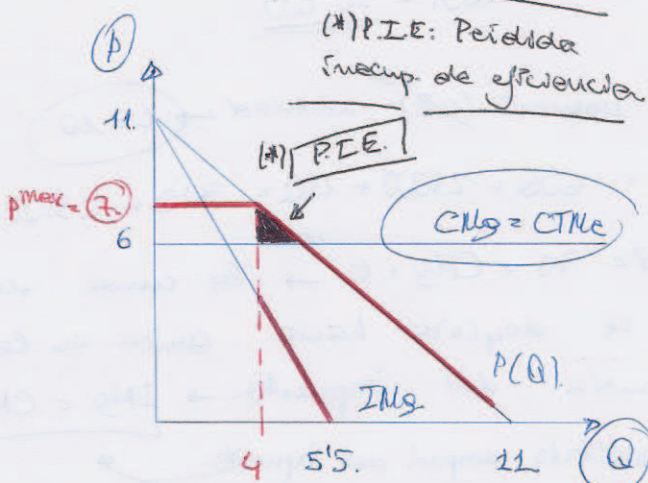 (*) P.I.E: Pérdida
irrecup. de eficiencia
P
11.
(*) P.I.E.
pmax = 7
6
CMg = CTMe
P(Q)
IMg
4
5'5.
11.
Q